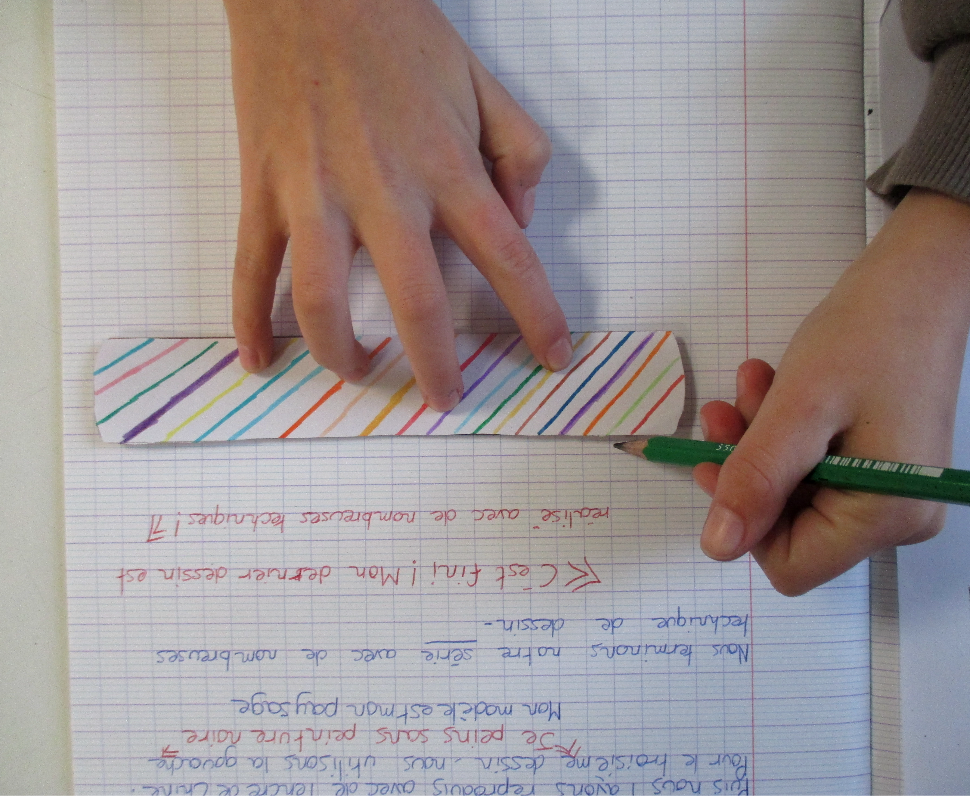 Puis nous l'avons reproduis avec de l'encre de Chine.
Pour le troisième dessin, nous utilisons la gouache
Je peins sans peinture noire
Mon modèle est mon paysage
Nous terminons notre série avec de nombreuses
technique de dessin-
≪ C'est fini! Mon dernier dessin est
réalisé avec de nombreuses techniques! ≫